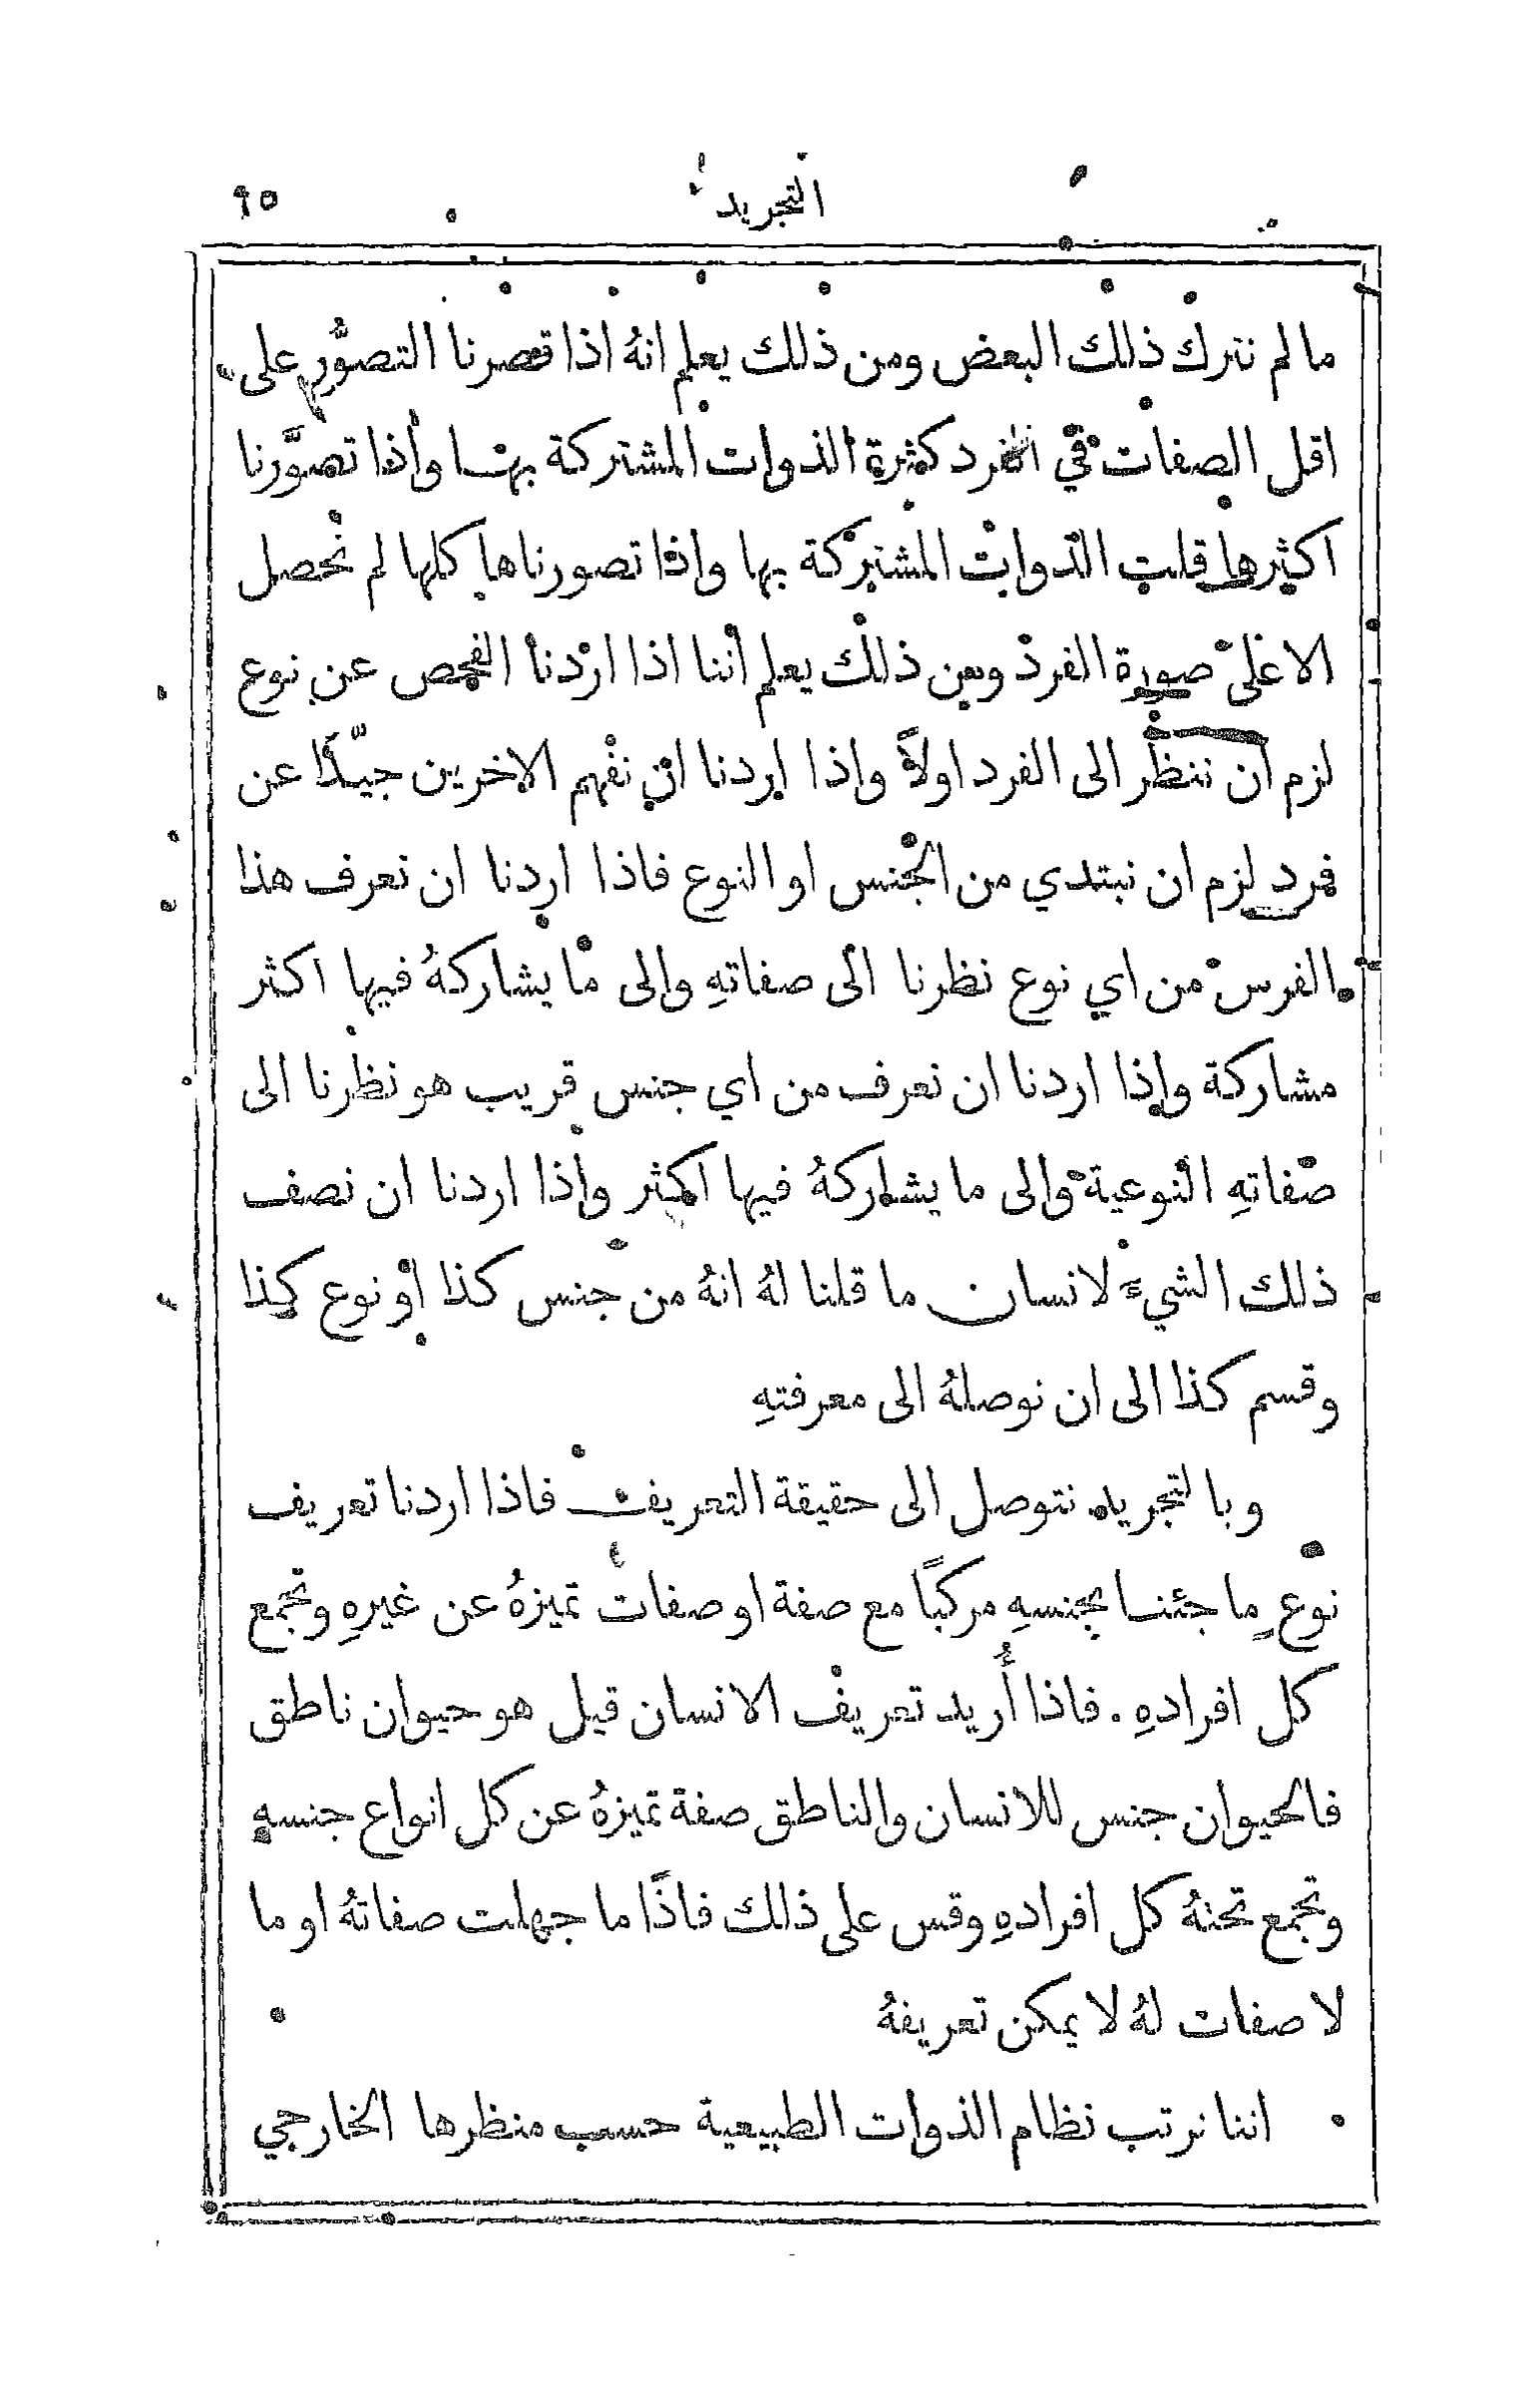 التجريد ٩٥
ما لم نترك ذلك البعض ومن ذلك يعلم انهُ اذا قصرنا التصوُّر على
اقل الصفات في الفرد كثرة الذوات المشتركة بها واذا تصوَّرنا
اكثرها قلت الذوات المشتركة بها واذا تصورناها كلها لم نحصل
الا على صورة الفرد ومن ذلك يعلم اننا اذا اردنا الفحص عن نوع
لزم ان ننظر الى الفرد اولاً واذا اردنا ان نفهم الاخرين جيّدًا عن
فرد لزم ان نبتدي من الجنس او النوع فاذا اردنا ان نعرف هذا
الفرس من اي نوع نظرنا الى صفاتهِ والى ما يشاركهُ فيها اكثر
مشاركة واذا اردنا ان نعرف من اي جنس قريب هو نظرنا الى
صفاتهِ النوعية والى ما يشاركهُ فيها اكثر واذا اردنا ان نصف
ذلك الشيء لانسان ما قلنا لهُ انهُ من جنس كذا او نوع كذا
وقسم كذا الى ان نوصلهُ الى معرفتهِ
وبالتجريد نتوصل الى حقيقة التعريف فاذا اردنا تعريف
نوعٍ ما جئنا بجنسهِ مركبًا مع صفة او صفات تميزهُ عن غيرهِ وتجمع
كل افرادهِ . فاذا أُريد تعريف الانسان قيل هو حيوان ناطق
فالحيوان جنس للانسان والناطق صفة تميزهُ عن كل انواع جنسهِ
وتجمع تحتهُ كل افرادهِ وقس على ذلك فاذًا ما جهلت صفاتهُ او ما
لا صفات لهُ لا يمكن تعريفهُ
اننا نرتب نظام الذوات الطبيعية حسب منظرها الخارجي